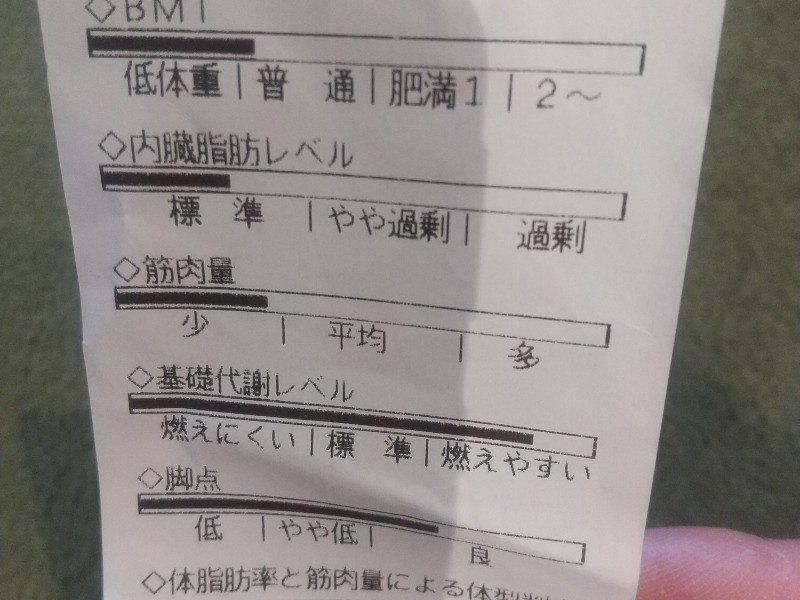 ◇BMI
低体重|普　通|肥満1|2～
◇内臓脂肪レベル
標　準|やや過剰|過剰
◇筋肉量
少|平均|多
◇基礎代謝レベル
燃えにくい|標　準|燃えやすい
◇脚点
低|やや低|良
◇体脂肪率と筋肉量による体型判